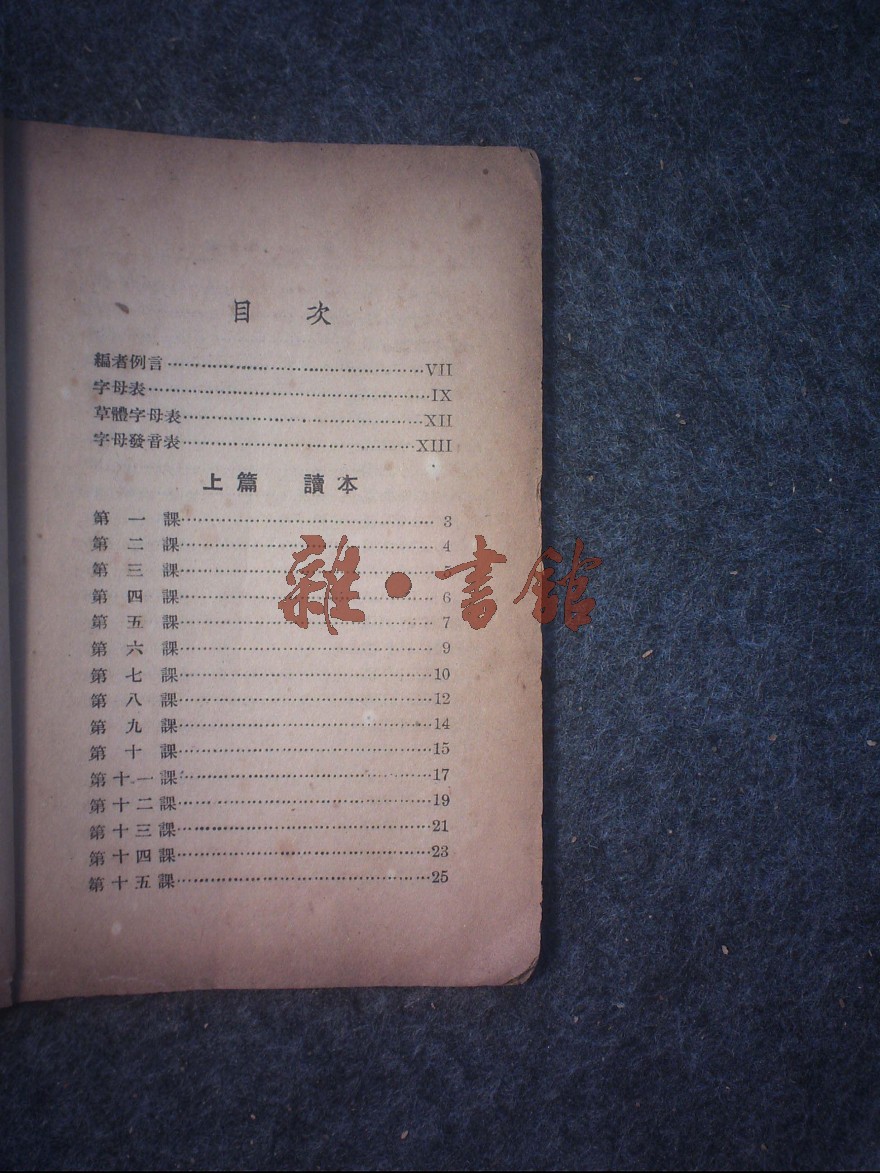 目 次
編者例言⋯⋯⋯⋯⋯⋯⋯⋯⋯⋯VII
字母表⋯⋯⋯⋯⋯⋯⋯⋯⋯⋯IX
草體字母表⋯⋯⋯⋯⋯⋯⋯⋯⋯⋯XII
字母發音表⋯⋯⋯⋯⋯⋯⋯⋯⋯⋯XIII
上篇 讀本
第一課⋯⋯⋯⋯⋯⋯⋯⋯⋯⋯3
第二課⋯⋯⋯⋯⋯⋯⋯⋯⋯⋯4
第三課⋯⋯⋯⋯⋯⋯⋯⋯⋯⋯
第四課⋯⋯⋯⋯⋯⋯⋯⋯⋯⋯6
第五課⋯⋯⋯⋯⋯⋯⋯⋯⋯⋯7
雜·書館
第六課⋯⋯⋯⋯⋯⋯⋯⋯⋯⋯9
第七課⋯⋯⋯⋯⋯⋯⋯⋯⋯⋯10
第八課⋯⋯⋯⋯⋯⋯⋯⋯⋯⋯12
第九課⋯⋯⋯⋯⋯⋯⋯⋯⋯⋯14
第十課⋯⋯⋯⋯⋯⋯⋯⋯⋯⋯15
第十一課⋯⋯⋯⋯⋯⋯⋯⋯⋯⋯17
第十二課⋯⋯⋯⋯⋯⋯⋯⋯⋯⋯19
第十三課⋯⋯⋯⋯⋯⋯⋯⋯⋯⋯21
第十四課⋯⋯⋯⋯⋯⋯⋯⋯⋯⋯23
第十五課⋯⋯⋯⋯⋯⋯⋯⋯⋯⋯25